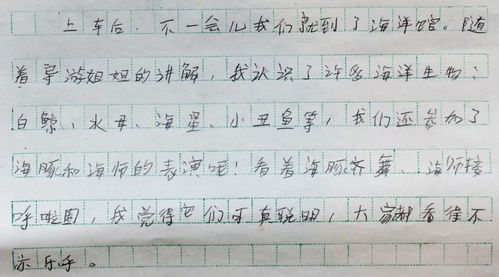 上车后，不一会儿我们就到了海洋馆。随
着导游姐姐的讲解，我认识了许多海洋生物：
白鲸、水母、海星、小丑鱼等，我们还参加了
海豚和海狮的表演呢！看着海豚齐舞、海狮接
呼啦圈，我觉得它们可真聪明，大家都看得不
亦乐乎。